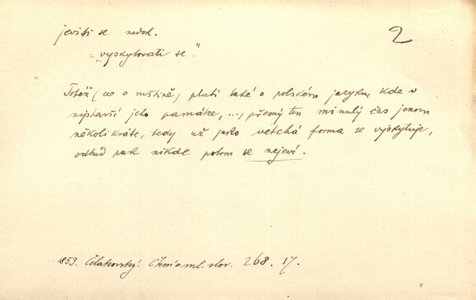 jeviti se nedok.
2
= „vyskytovati se".
Totéž, (co o ruštině) platí také o polském jazyku, kde v
nejstarší jeho památce, ..., přesný ten minulý čas jenom
několikráte, tedy už jako vetchá forma se vyskytuje,
odtud pak nikde potom se nejeví.
1853. Čelakovský. Čtní o ml. slov. 268. 17.